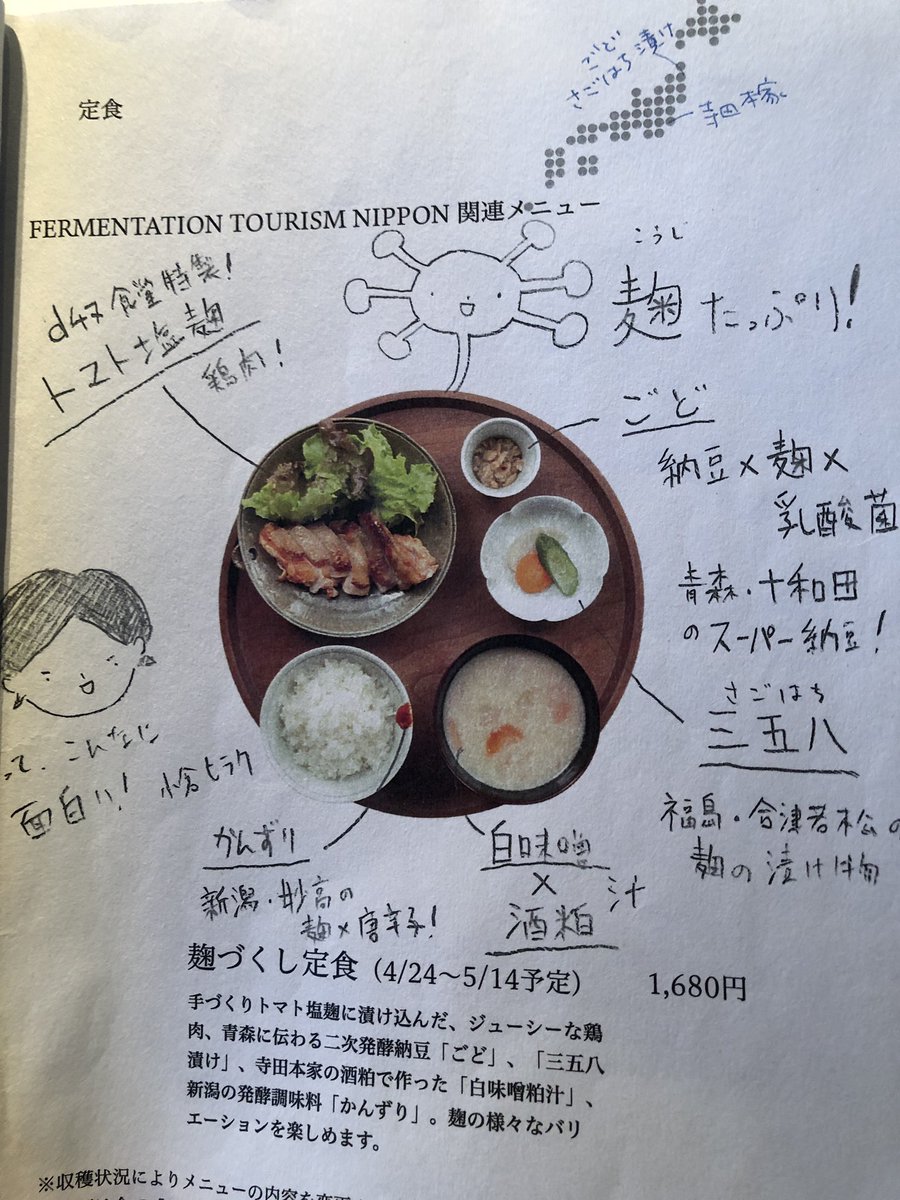 定食
ごど
さごはち漬け
寺田本家
FERMENTATION TOURISM NIPPON 関連メニュー
d47食堂特製!
トマト塩麹
鶏肉!
こうじ
麹たっぷり!
ごど
納豆×麹×
乳酸菌
青森・十和田
のスーパー納豆!
さごはち
三五八
福島・会津若松の
麹の漬け物
って、こんなに
面白い!
小倉ヒラク
かんずり
新潟・妙高の
麹×唐辛子!
白味噌
×
酒粕
汁
麹づくし定食(4/24〜5/14予定) 1,680円
手づくりトマト塩麹に漬け込んだ、ジューシーな鶏
肉、青森に伝わる二次発酵納豆「ごど」、「三五八
漬け」、寺田本家の酒粕で作った「白味噌粕汁」、
新潟の発酵調味料「かんずり」。麹の様々なバリ
エーションを楽しめます。
※収穫状況によりメニューの内容を変更